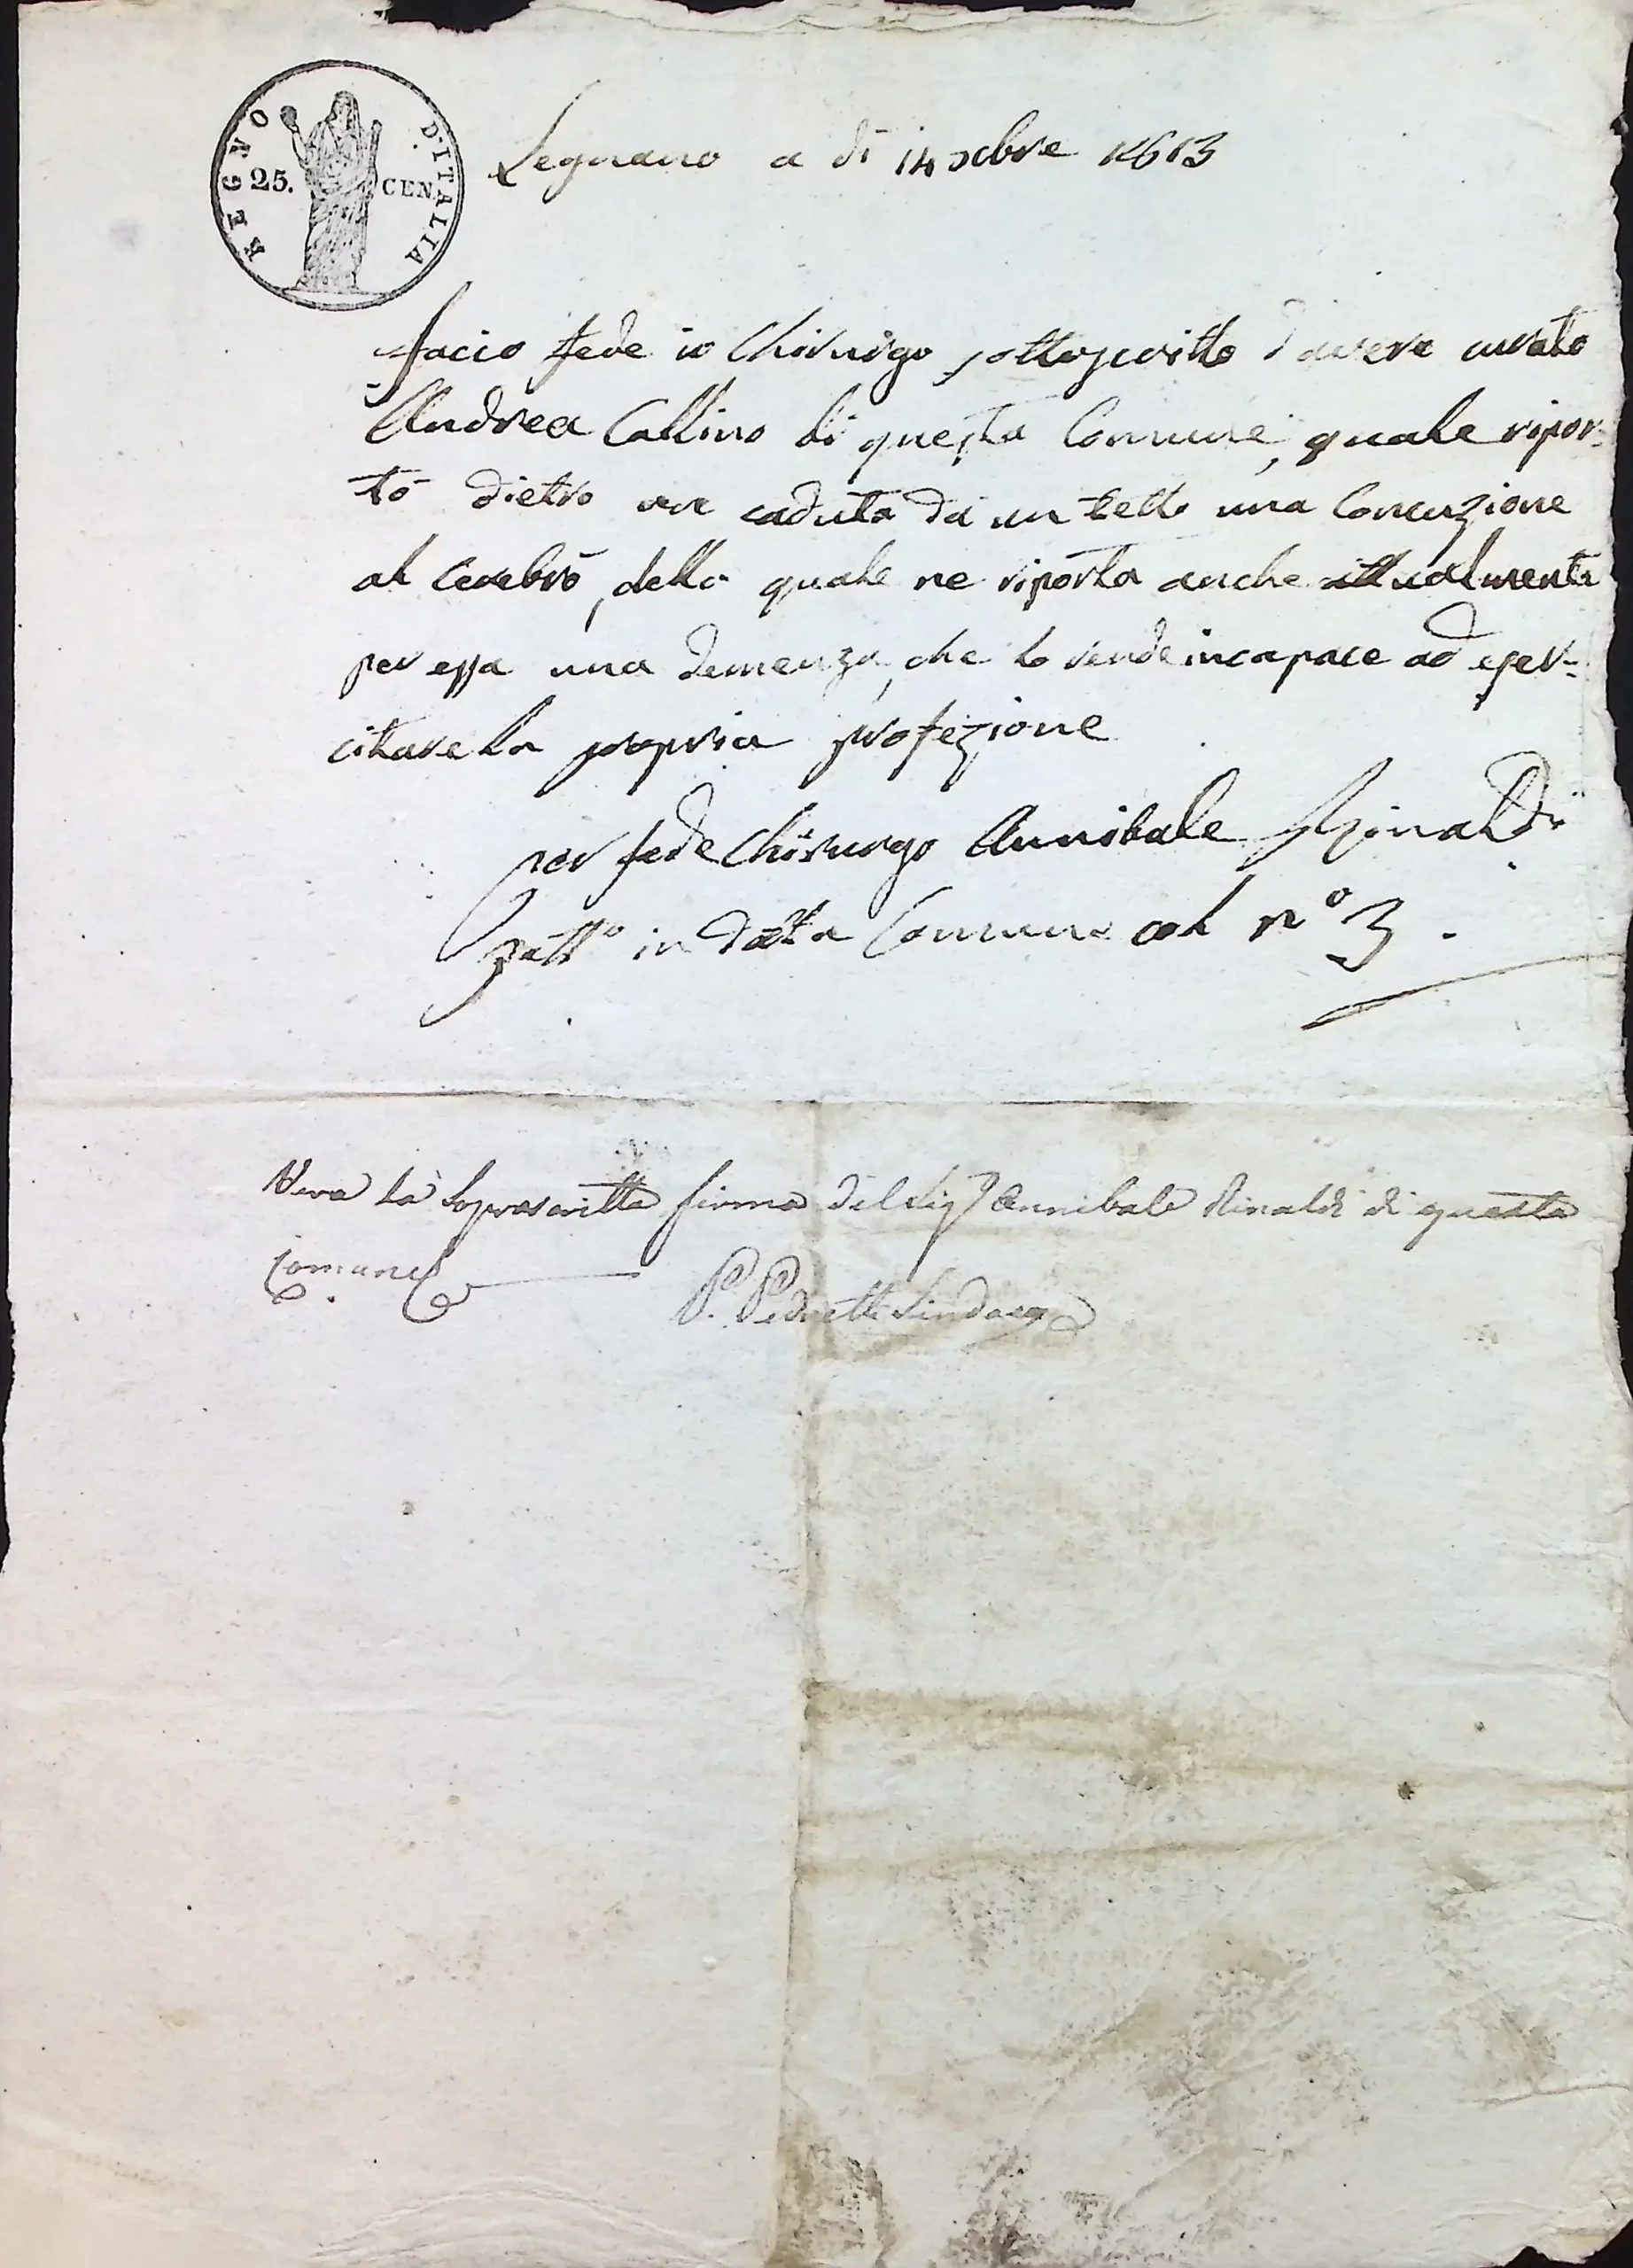 REGNO D'ITALIA
25. CEN.
Legnano a di 14 xbre 1813
Faccio fede io Chirurgo sottoscritto d'avere curato
Andrea Collino di questa Comune, quale ripor-
tò dietro caduta da un tetto una Concuzione
al Cerebro, della quale ne riporta anche attualmente
per essa una demenza, che lo rende incapace ad eser-
citare la propria profezione
per fede Chirurgo Annibale Rinaldi
Patt.º in detta Comune col nº 3.
Vera la Soprascritta firma del Sigr Annibale Rinaldi di questa
Comune
P. Pedretti Sindaco